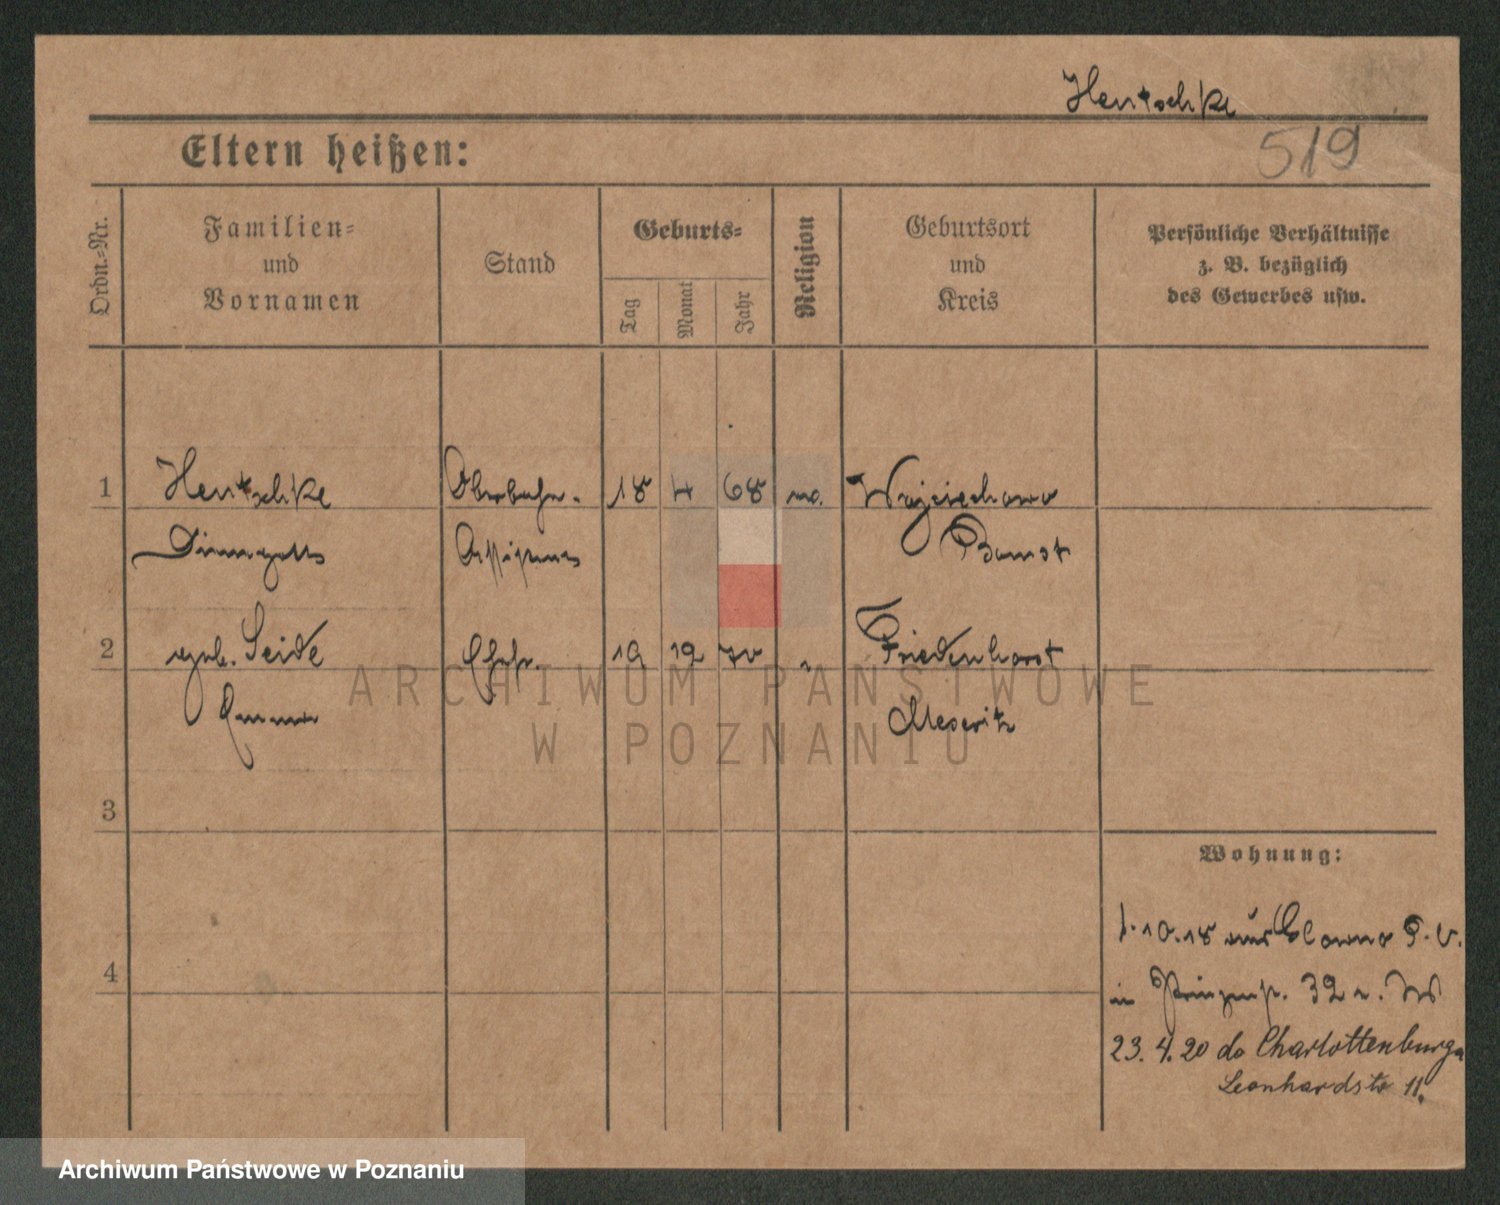 Hentschke
519
Eltern heißen:
Ordn.-Nr.
Familien-
und
Vornamen
Stand
Geburts-
Tag
Monat
Jahr
Religion
Geburtsort
und
Kreis
Persönliche Verhältnisse
z. B. bezüglich
des Gewerbes usw.
1 Hentschke Oberbahn- 18 4 68 Wojciechowo
Assistent Bomst
2 geb. Seide Ehefr. 19 12 70 " Friedenhorst
Emma Meseritz
3
Wohnung:
4
1.10.18 aus
in 32
23.4.20 do Charlottenburga
Leonhardstr 11.
ARCHIWUM PAŃSTWOWE
W POZNANIU
Archiwum Państwowe w Poznaniu